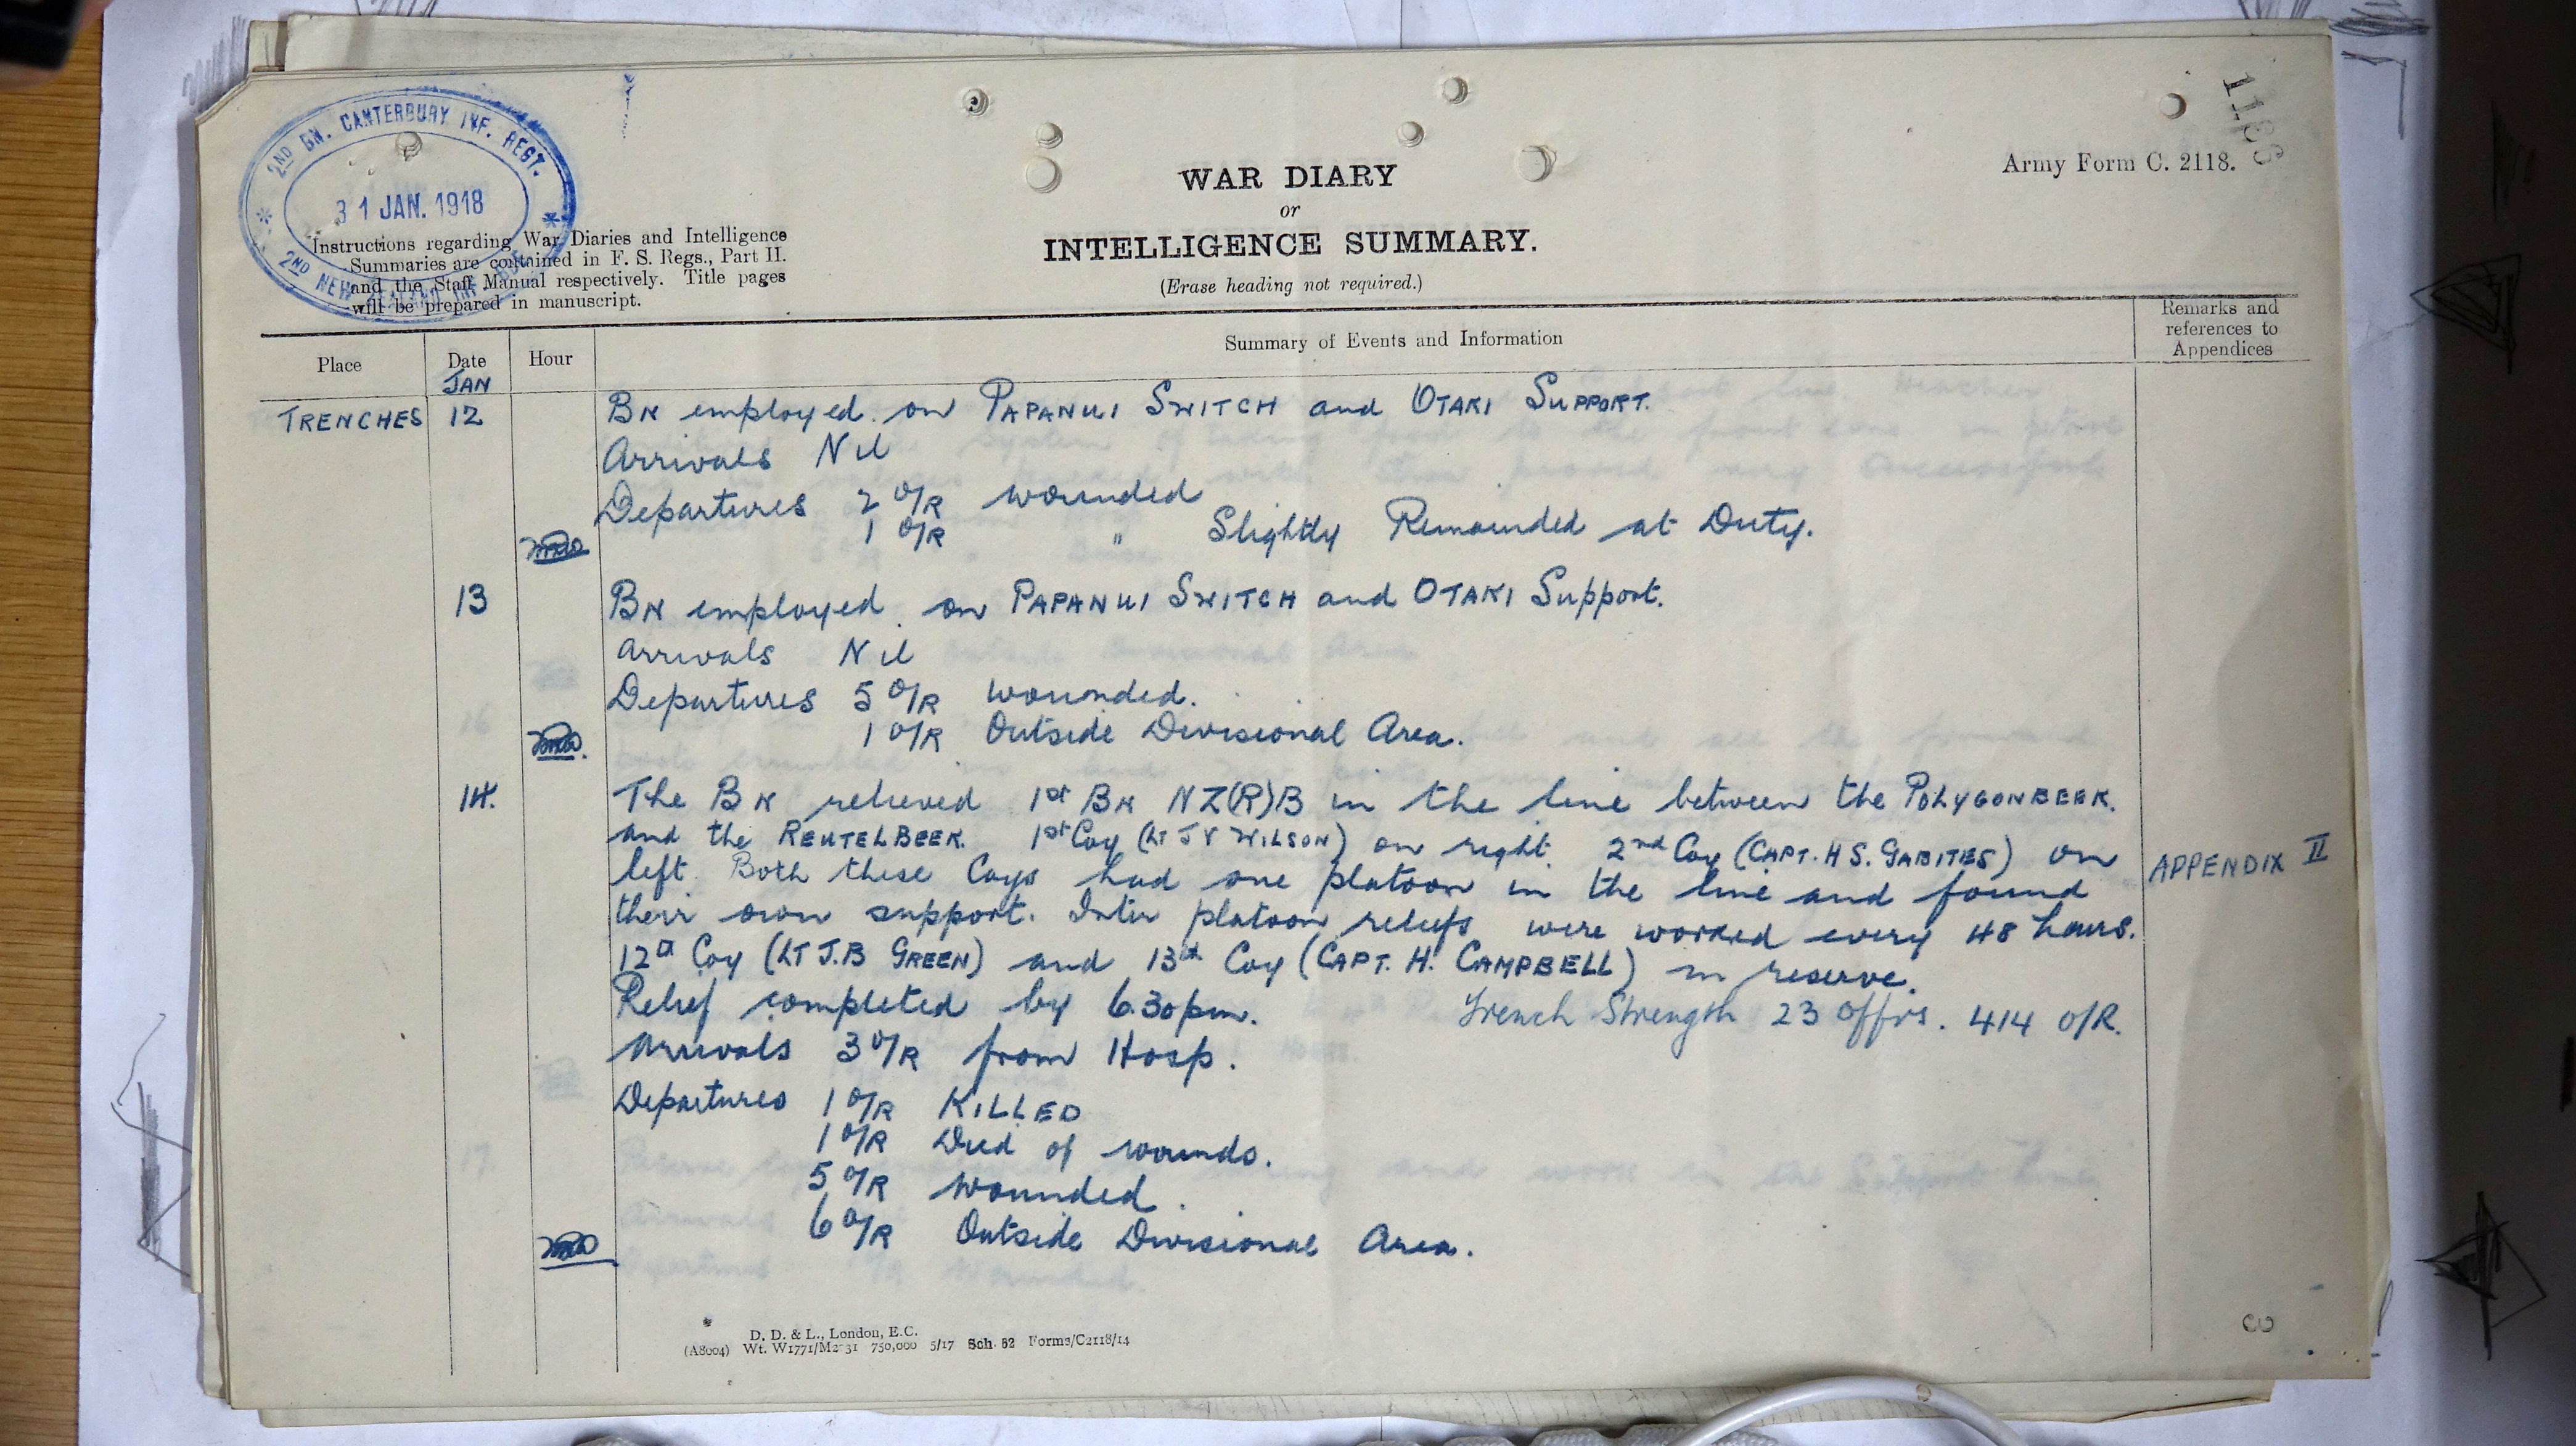 2ND BN. CANTERBURY INF. REGT.
31 JAN. 1918
2ND NEW ZEALAND INF. BDE.
1186
Army Form C. 2118.
WAR DIARY
or
INTELLIGENCE SUMMARY.
(Erase heading not required.)
Instructions regarding War Diaries and Intelligence
Summaries are contained in F. S. Regs., Part II.
and the Staff Manual respectively. Title pages
will be prepared in manuscript.
Place Date Hour Summary of Events and Information Remarks and
references to
Appendices
JAN
TRENCHES 12 BN employed on PAPANUI SWITCH and OTAKI SUPPORT.
Arrivals Nil
Departures 2 O/R wounded
1 O/R " Slightly Remainded at Duty.
13 BN employed on PAPANUI SWITCH and OTAKI Support.
Arrivals Nil
Departures 5 O/R wounded.
1 O/R Outside Divisional Area.
14. The BN relieved 1st BN NZ(R)B in the line between the POLYGONBEEK.
and the REUTELBEEK. 1st Coy (LT J V WILSON) on right. 2nd Coy (CAPT. H S. GABITES) on
left. Both these Coys had one platoon in the line and found APPENDIX II
their own support. Inter platoon reliefs were worked every 48 hours.
12th Coy (LT J.B GREEN) and 13th Coy (CAPT. H. CAMPBELL) in reserve.
Relief completed by 6.30pm. Trench Strength 23 Offrs. 414 O/R.
Arrivals 3 O/R from Hosp.
Departures 1 O/R KILLED
1 O/R Died of wounds.
5 O/R Wounded.
6 O/R Outside Divisional Area.
3
D. D. & L., London, E.C.
(A8004) Wt. W1771/M2 31 750,000 5/17 Sch. 52 Forms/C2118/14